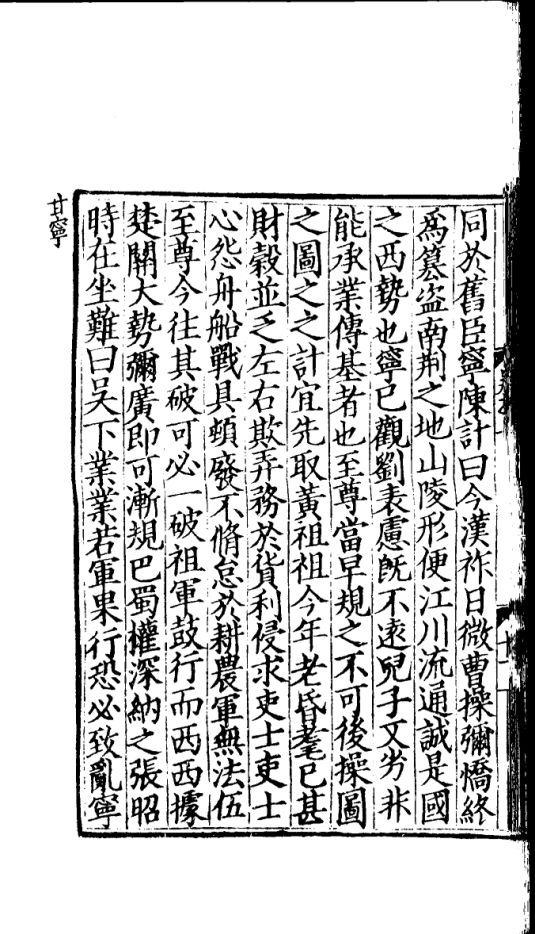 同於舊臣寧陳計曰今漢祚日微曹操彌憍終
爲篡盗南荆之地山陵形便江川流通誠是國
之西勢也寧已觀劉表慮旣不逺兒子又劣非
能承業傳基者也至尊當早規之不可後操圖
之圖之之計宜先取黃祖祖今年老昏耄已甚
財穀並乏左右欺弄務於貨利侵求吏士吏士
心怨舟船戰具頓廢不脩怠於耕農軍無法伍
至尊今往其破可必一破祖軍鼓行而西西據
楚關大勢彌廣即可漸規巴蜀權深納之張昭
時在坐難曰吴下業業若軍果行恐必致亂寧
甘寧